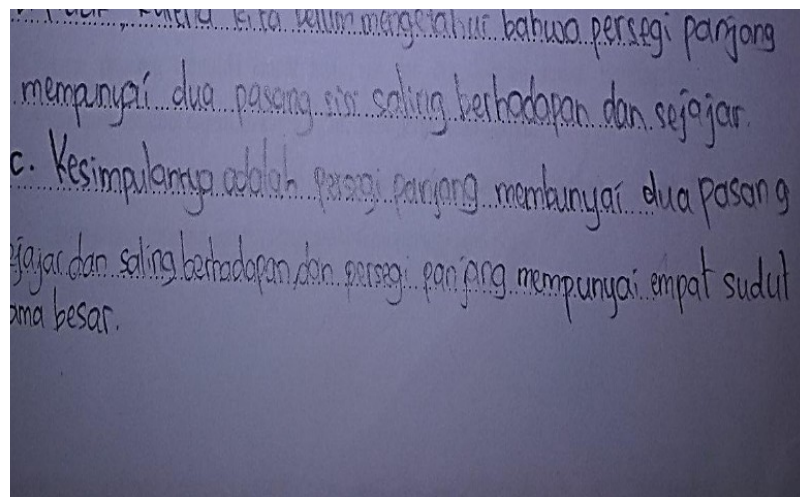 , karena kita belum mengetahui bahwa persegi panjang
mempunyai dua pasang sisi saling berhadapan dan sejajar.
c. Kesimpulannya adalah persegi panjang membunyai dua pasang
ejajar dan saling berhadapan, dan persegi panjang mempunyai empat sudut
ama besar.